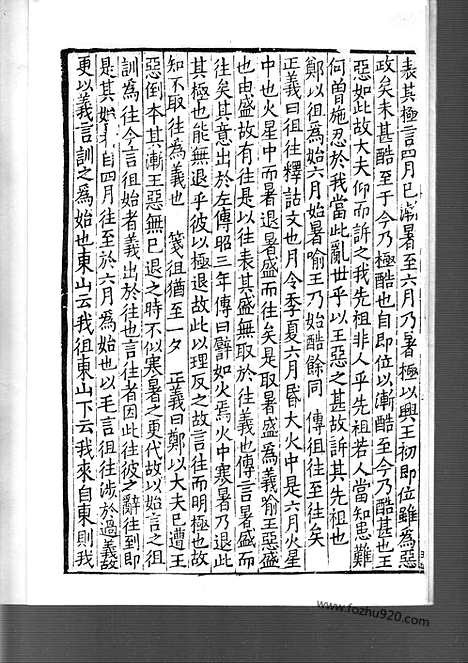 表其極言四月已漸暑至六月乃暑極以興王初即位雖為惡
政矣未甚酷至于今乃極酷也自即位以漸酷至今乃酷甚也王
惡如此故大夫仰而訴之我先祖非人乎先祖若人當知患難
何曾施忍於我當此亂世乎以王惡之甚故訴其先祖也
鄭以徂為始六月始暑喻王乃始酷餘同 傳徂往至往矣
正義曰徂往釋詁文也月令季夏六月昏大火中是六月火星
中也火星中而暑退暑盛而往矣是取暑盛為義喻王惡盛
也由盛故有往是以往表其盛無取於往義也傳言暑盛而
往矣其意出於左傳昭三年傳曰譬如火焉火中寒暑乃退此
其極也能無退乎彼以極退故此以理反之故言往而明極也故
知不取往為義也 箋徂猶至一夕 正義曰鄭以大夫已遭王
惡倒本其漸王惡無已退之時不似寒暑之更代故以始言之徂
訓為往今言徂始者義出於往也言往者因此往彼之辭往到即
是其始 自四月往至於六月為始也以毛言徂往涉於過義故
更以義言訓之為始也東山云我徂東山下云我來自東則我
www.fozhu920.com